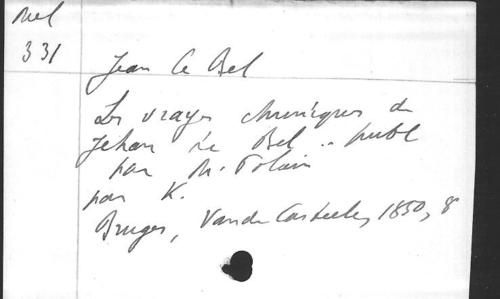 Mel
331
Jean Le Bel
Les vrayes chroniques de
Jehan Le Bel .. publ
par M. Polain
par K.
Bruges, Vande Casteele, 1850, 8